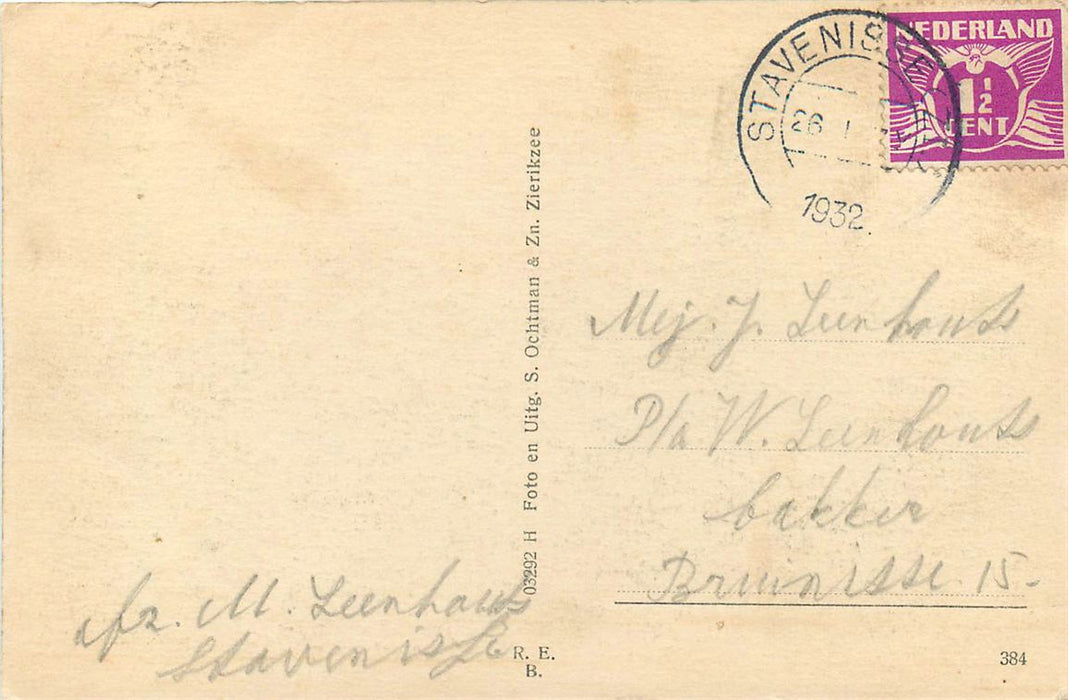 NEDERLAND
1½
CENT
STAVENISSE
26 1
1932.
Mej. J. Leenhouts
P/a W. Leenhouts
bakker
Bruinisse 15-
afz. M. Leenhouts
Stavenisse
03292 H Foto en Uitg. S. Ochtman & Zn. Zierikzee
R. E.
B.
384